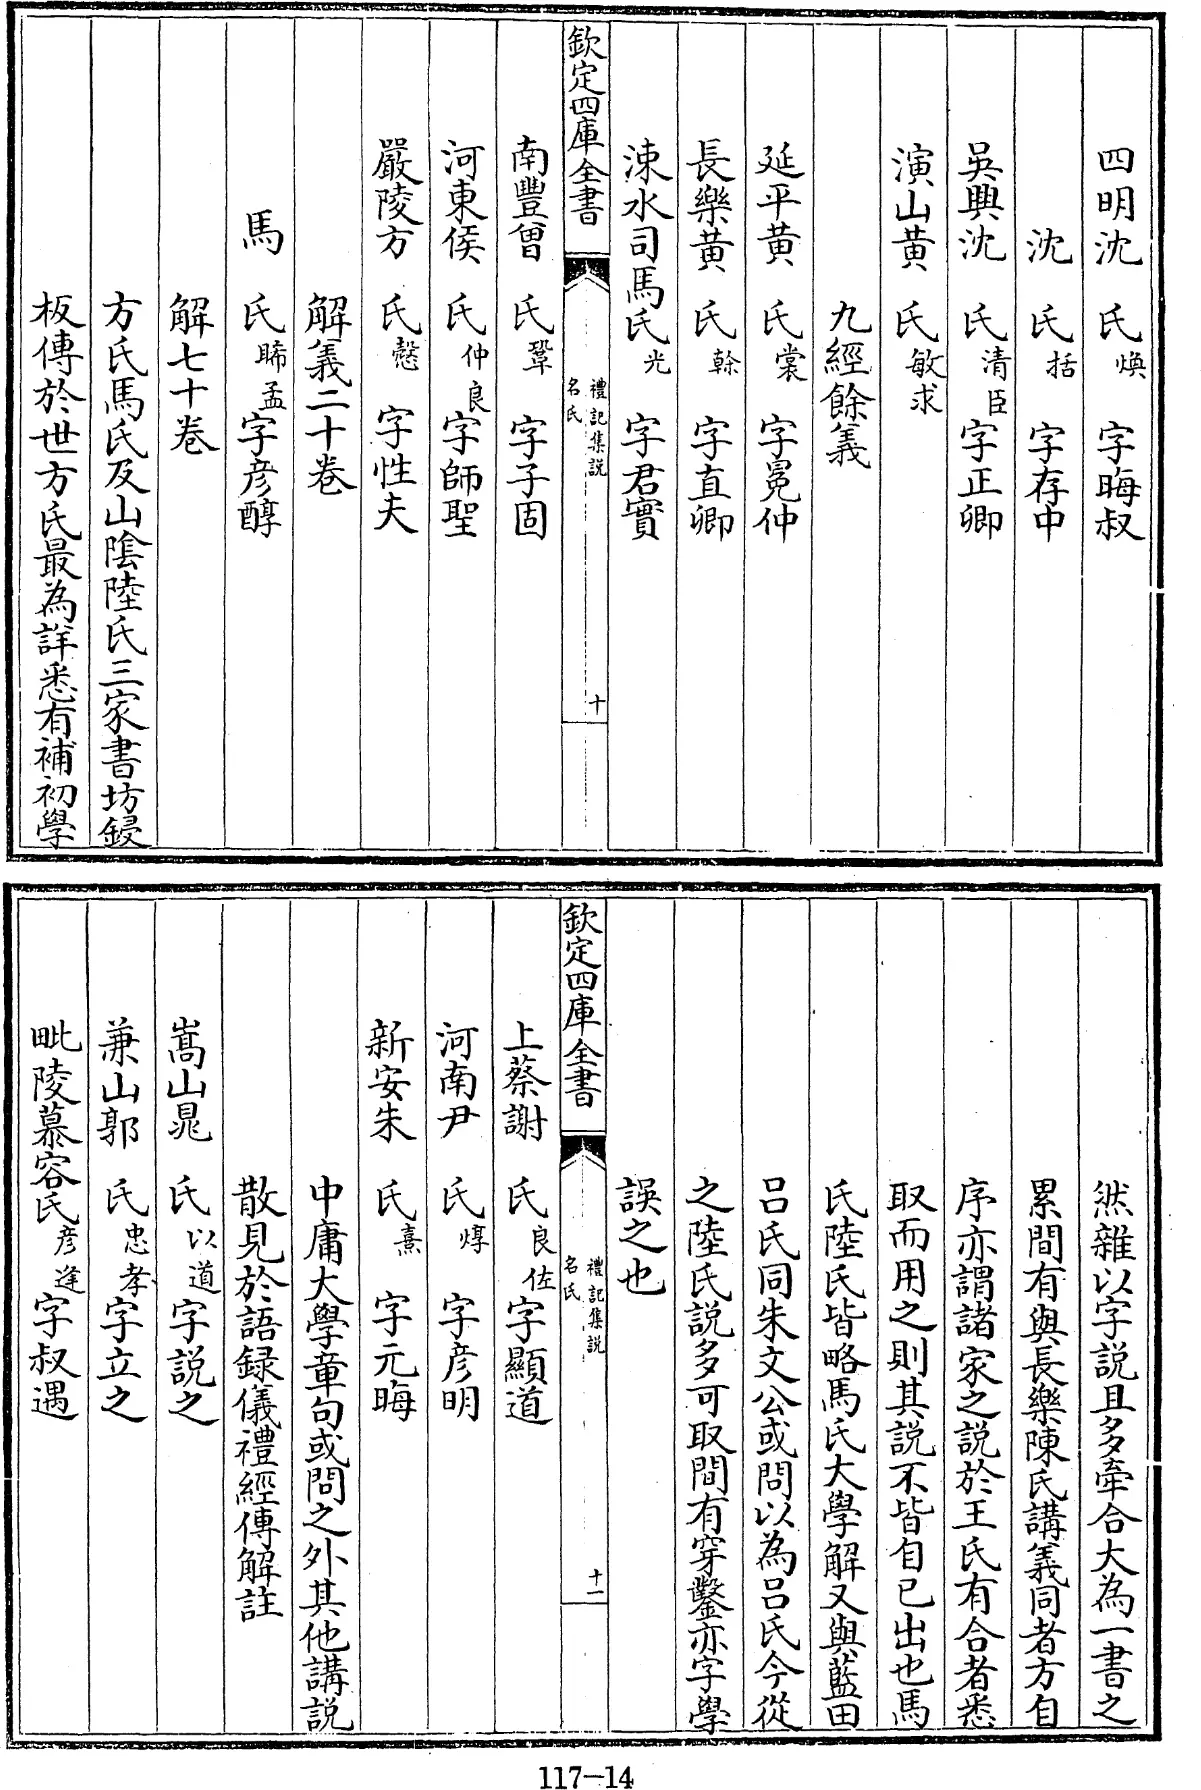 四明沈氏煥字晦叔
沈氏括字存中
吳興沈氏清臣字正卿
演山黄氏敏求
九經餘義
延平黄氏裳字冕仲
長樂黄氏榦字直卿
涑水司馬氏光字君實
欽定四庫全書
禮記集説
名氏
十
南豐曾氏鞏字子固
河東侯氏仲良字師聖
嚴陵方氏慤字性夫
解義二十卷
馬氏晞孟字彦醇
解七十卷
方氏馬氏及山陰陸氏三家書坊鋟
板傳於世方氏最為詳悉有補初學
然雜以字説且多牽合大為一書之
累間有與長樂陳氏講義同者方自
序亦謂諸家之説於王氏有合者悉
取而用之則其説不皆自己出也馬
氏陸氏皆略馬氏大學解又與藍田
吕氏同朱文公或問以為吕氏今從
之陸氏説多可取間有穿鑿亦字學
誤之也
欽定四庫全書
禮記集説
名氏
十一
上蔡謝氏良佐字顯道
河南尹氏焞字彦明
新安朱氏熹字元晦
中庸大學章句或問之外其他講説
散見於語録儀禮經傳解註
嵩山晁氏以道字説之
兼山郭氏忠孝字立之
毗陵慕容氏彦逢字叔遇
117-14